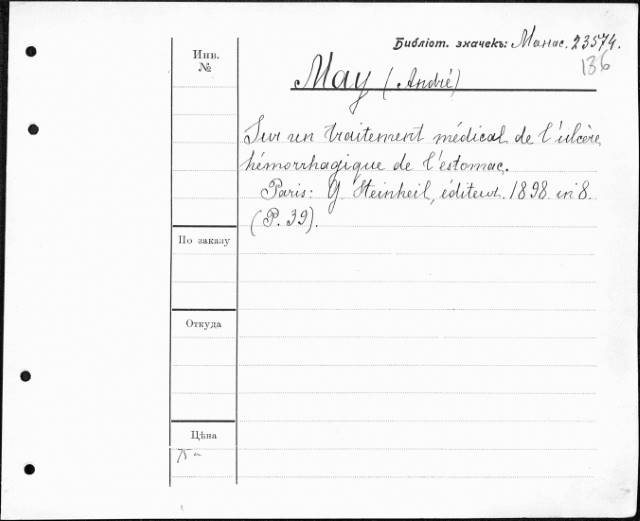 Библіот. значекъ: Манас. 23574.
136
Инв.
№
May (André)
Sur un traitement médical de l'ulcère
hémorrhagique de l'estomac.
Paris: G. Steinheil, éditeur. 1898. in 8.
(P. 39).
По заказу
Откуда
Цѣна